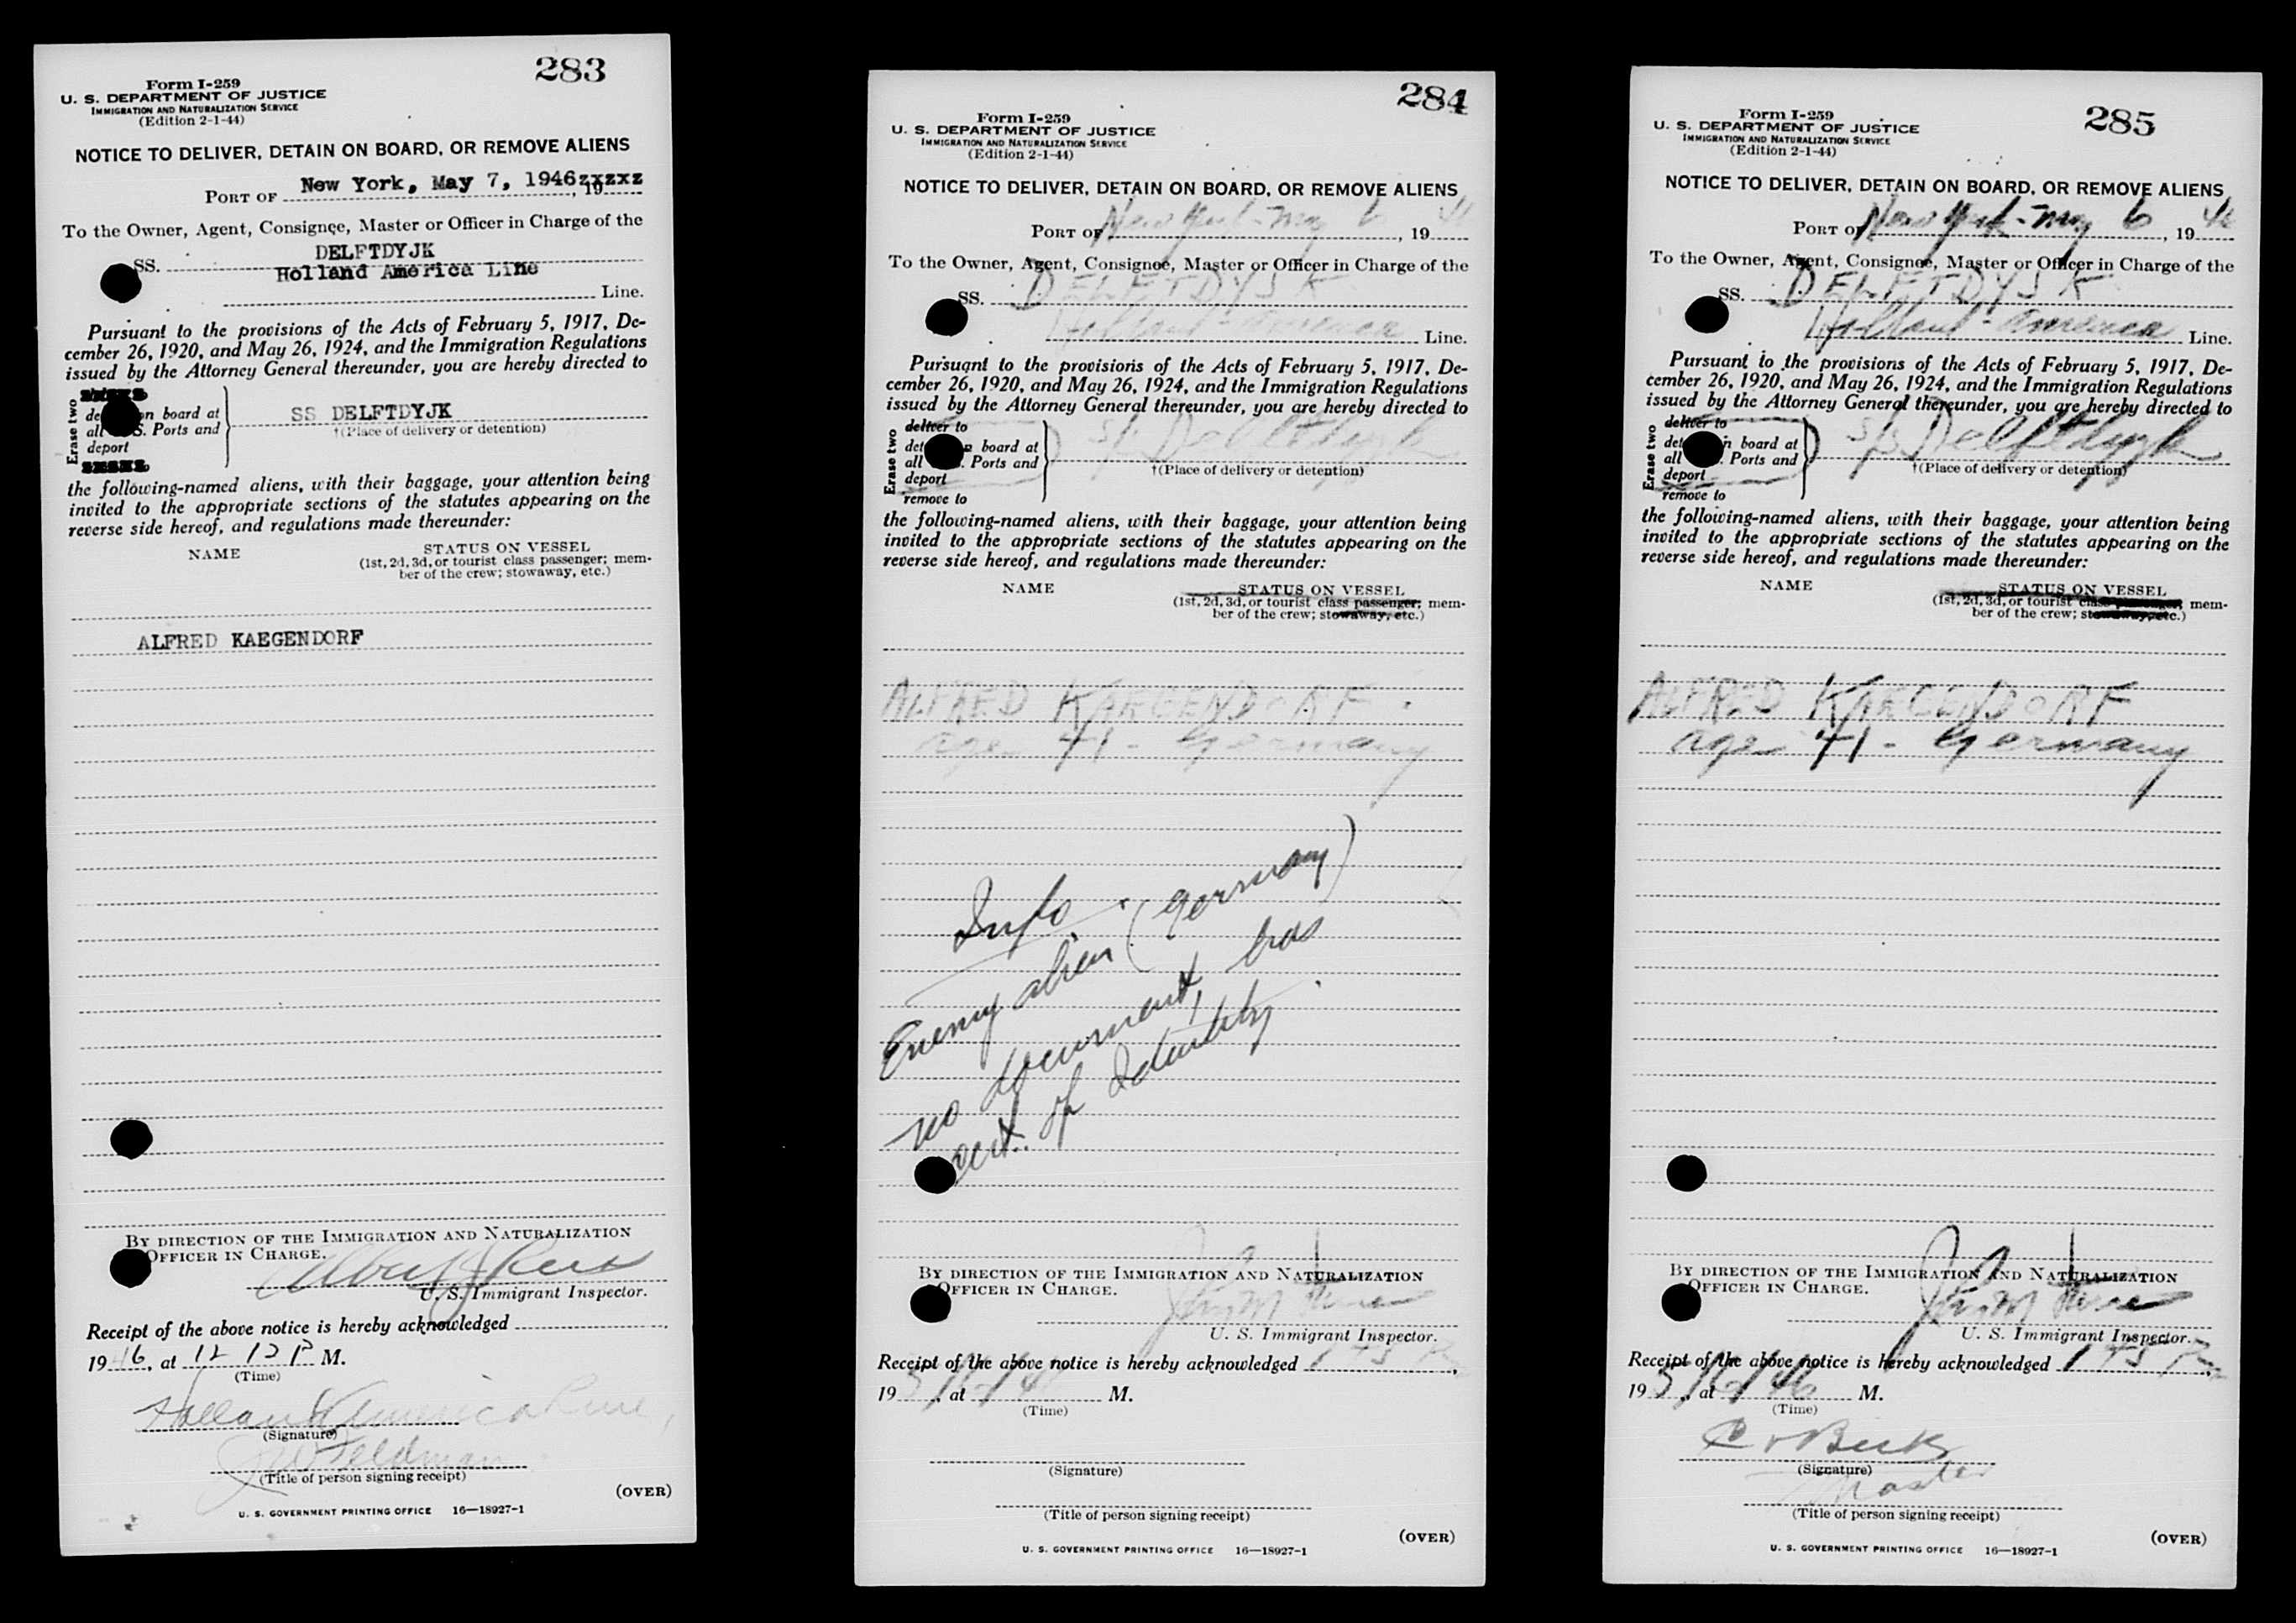 283
Form I-259
U. S. DEPARTMENT OF JUSTICE
IMMIGRATION AND NATURALIZATION SERVICE
(Edition 2-1-44)
NOTICE TO DELIVER, DETAIN ON BOARD, OR REMOVE ALIENS
PORT OF New York, May 7, 1946zxzxz, 19
To the Owner, Agent, Consignee, Master or Officer in Charge of the
SS. DELFTDYJK
Holland America Line
Line.
Pursuant to the provisions of the Acts of February 5, 1917, De-
cember 26, 1920, and May 26, 1924, and the Immigration Regulations
issued by the Attorney General thereunder, you are hereby directed to
Erase two
on board at
all S. Ports and
deport
SS DELFTDYJK
†(Place of delivery or detention)
the following-named aliens, with their baggage, your attention being
invited to the appropriate sections of the statutes appearing on the
reverse side hereof, and regulations made thereunder:
NAME STATUS ON VESSEL
(1st, 2d, 3d, or tourist class passenger; mem-
ber of the crew; stowaway, etc.)
ALFRED KAEGENDORF
BY DIRECTION OF THE IMMIGRATION AND NATURALIZATION
OFFICER IN CHARGE.
U. S. Immigrant Inspector.
Receipt of the above notice is hereby acknowledged
1946, at 12 12 P M.
(Time)
Holland America Line
(Signature)
Feldman
(Title of person signing receipt)
(OVER)
U. S. GOVERNMENT PRINTING OFFICE 16—18927-1
284
Form I-259
U. S. DEPARTMENT OF JUSTICE
IMMIGRATION AND NATURALIZATION SERVICE
(Edition 2-1-44)
NOTICE TO DELIVER, DETAIN ON BOARD, OR REMOVE ALIENS
PORT OF New York - May 6, 1946
To the Owner, Agent, Consignee, Master or Officer in Charge of the
SS. DELFTDYJK
Holland-America Line.
Pursuant to the provisions of the Acts of February 5, 1917, De-
cember 26, 1920, and May 26, 1924, and the Immigration Regulations
issued by the Attorney General thereunder, you are hereby directed to
Erase two
deliver to
board at
all Ports and
deport
remove to
S/S Delftdyjk
†(Place of delivery or detention)
the following-named aliens, with their baggage, your attention being
invited to the appropriate sections of the statutes appearing on the
reverse side hereof, and regulations made thereunder:
NAME STATUS ON VESSEL
(1st, 2d, 3d, or tourist class passenger; mem-
ber of the crew; stowaway, etc.)
ALFRED KAEGENDORF
age 41 - Germany
Info
Enemy alien (Germany)
no document, has
cert. of Identity
BY DIRECTION OF THE IMMIGRATION AND NATURALIZATION
OFFICER IN CHARGE.
U. S. Immigrant Inspector.
Receipt of the above notice is hereby acknowledged 1 45 Pm
19 5/6/46, at M.
(Time)
(Signature)
(Title of person signing receipt)
(OVER)
U. S. GOVERNMENT PRINTING OFFICE 16—18927-1
285
Form I-259
U. S. DEPARTMENT OF JUSTICE
IMMIGRATION AND NATURALIZATION SERVICE
(Edition 2-1-44)
NOTICE TO DELIVER, DETAIN ON BOARD, OR REMOVE ALIENS
PORT OF New York - May 6, 1946
To the Owner, Agent, Consignee, Master or Officer in Charge of the
SS. DELFTDYJK
Holland-America Line.
Pursuant to the provisions of the Acts of February 5, 1917, De-
cember 26, 1920, and May 26, 1924, and the Immigration Regulations
issued by the Attorney General thereunder, you are hereby directed to
Erase two
deliver to
board at
all Ports and
deport
remove to
S/S Delftdyjk
†(Place of delivery or detention)
the following-named aliens, with their baggage, your attention being
invited to the appropriate sections of the statutes appearing on the
reverse side hereof, and regulations made thereunder:
NAME STATUS ON VESSEL
(1st, 2d, 3d, or tourist class mem-
ber of the crew;
ALFRED KAEGENDORF
age 41 - Germany
BY DIRECTION OF THE IMMIGRATION AND NATURALIZATION
OFFICER IN CHARGE.
U. S. Immigrant Inspector.
Receipt of the above notice is hereby acknowledged 1 45 Pm
19 5/6/46, at M.
(Time)
(Signature)
Master
(Title of person signing receipt)
(OVER)
U. S. GOVERNMENT PRINTING OFFICE 16—18927-1